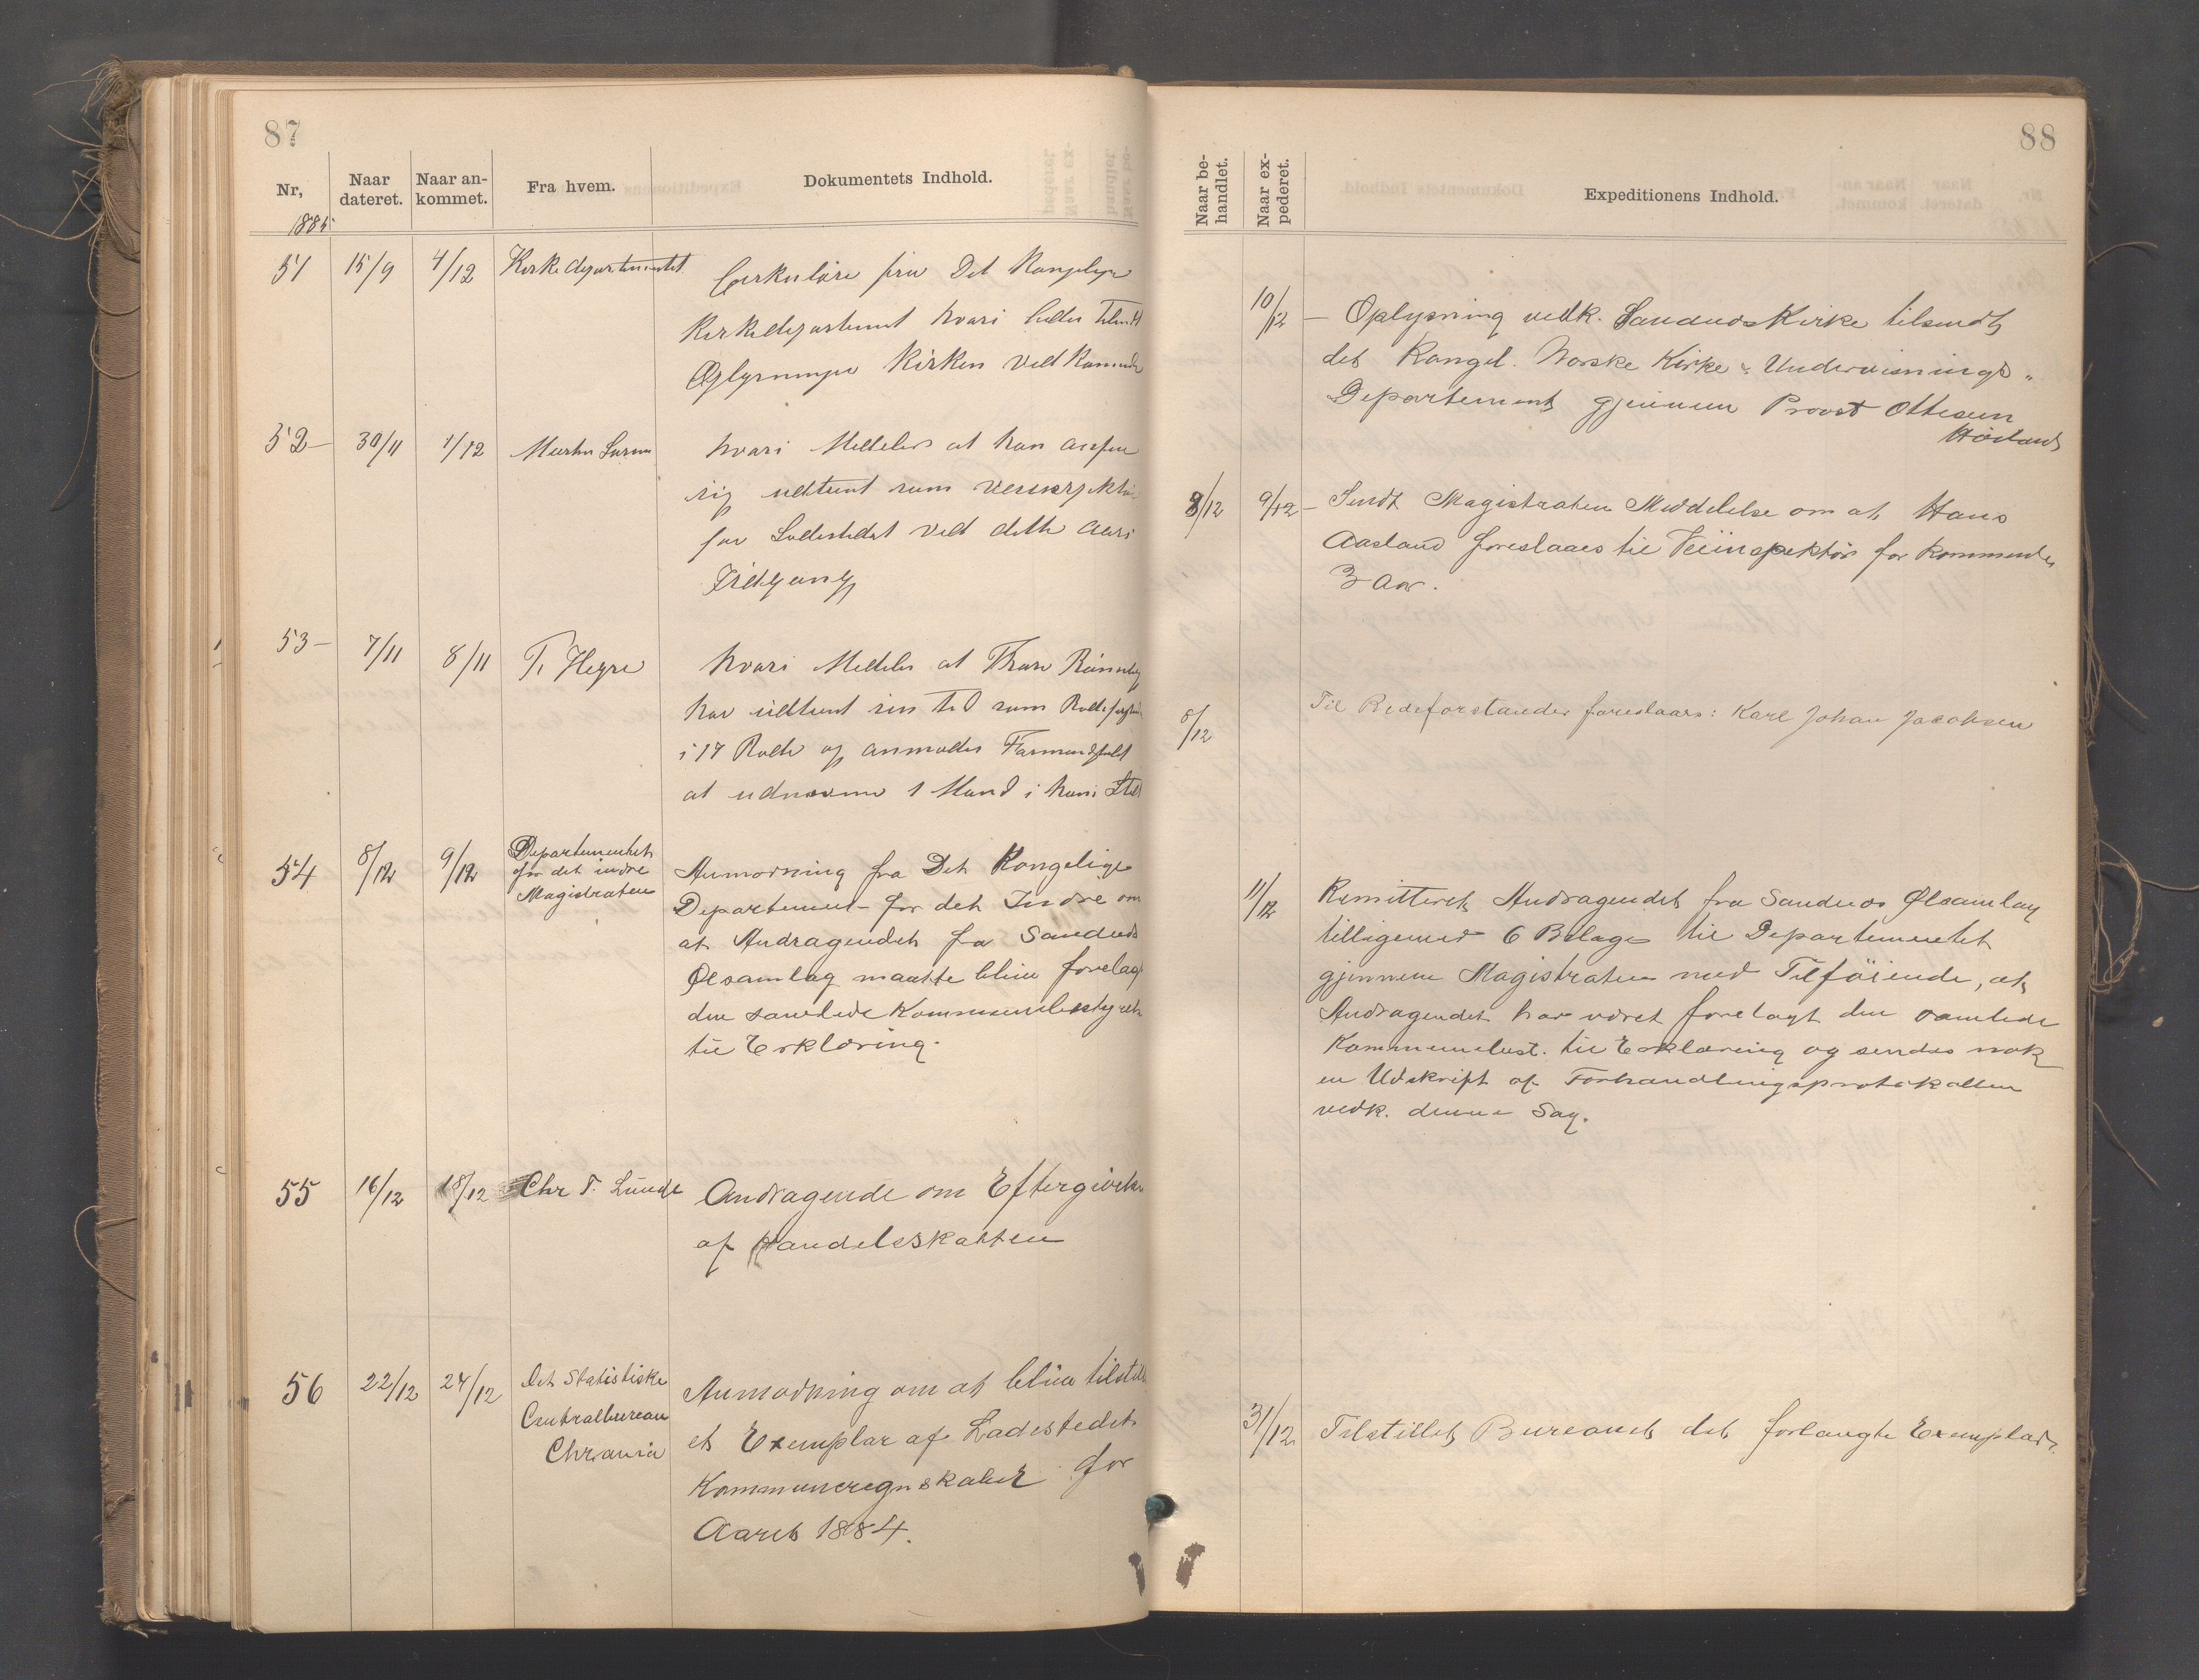 87
Nr,
Naar dateret.
Naar an-kommet.
Fra hvem.
Dokumentets Indhold.
1885
51 15/9 4/12 Kirkedepartementet
Cirkulære fra Det Kongelige
Kirkedepartement hvori bedes tilsendt
Oplysninger Kirken vedkommende
52 – 30/11 1/12
hvori Meddeles at han anser
sig udtjent som Veiinspektør
for Ladestedet ved dette Aars
Udgang
53 – 7/11 8/11 T. Heyre
hvori Meddeles at Thore Rønneby
har udtjent sin Tid som
i 17 Rode og anmodes Formandskabet
at udnævne 1 Mand i hans Sted
54 8/12 9/12 Departementet
for det indre
Magistraten
Anmodning fra Det Kongelige
Departement for det Indre om
at Andragendet fra Sandnes
Ølsamlag maatte blive forelagt
den samlede Kommunebestyrelse
til Erklæring.
55 16/12 18/12 Chr T. Lunde
Andragende om Eftergivelse
af Handelsskatten
56 22/12 24/12 Det Statistiske
Centralbureau
Chrania
Anmodning om at blive tilstillet
et Exemplar af Ladestedets
Kommuneregnskaber for
Aaret 1884.
88
Naar be-handlet.
Naar ex-pederet.
Expeditionens Indhold.
10/12 – Oplysning vedk. Sandnes Kirke tilsendt
det Kongel. Norske Kirke & Undervisnings-
Departement gjennem Provst Ottesen
Høiland
8/12 9/12 – Sendt Magistraten Meddelelse om at Hans
Aasland foreslaaes til Veiinspektør for kommende
3 Aar.
8/12 Til Rodeforstander foreslaaes: Karl Johan Jacobsen
11/12 Remitteret Andragendet fra Sandnes Ølsamlag
tilligemed 6 Bilage til Departementet
gjennem Magistraten med Tilføiende, at
Andragendet har været forelagt den samlede
Kommunebest. til Erklæring og sendes nok
en Udskrift af Forhandlingsprotokollen
vedk. denne Sag.
31/12 Tilstillet Bureauet det forlangte Exemplar.